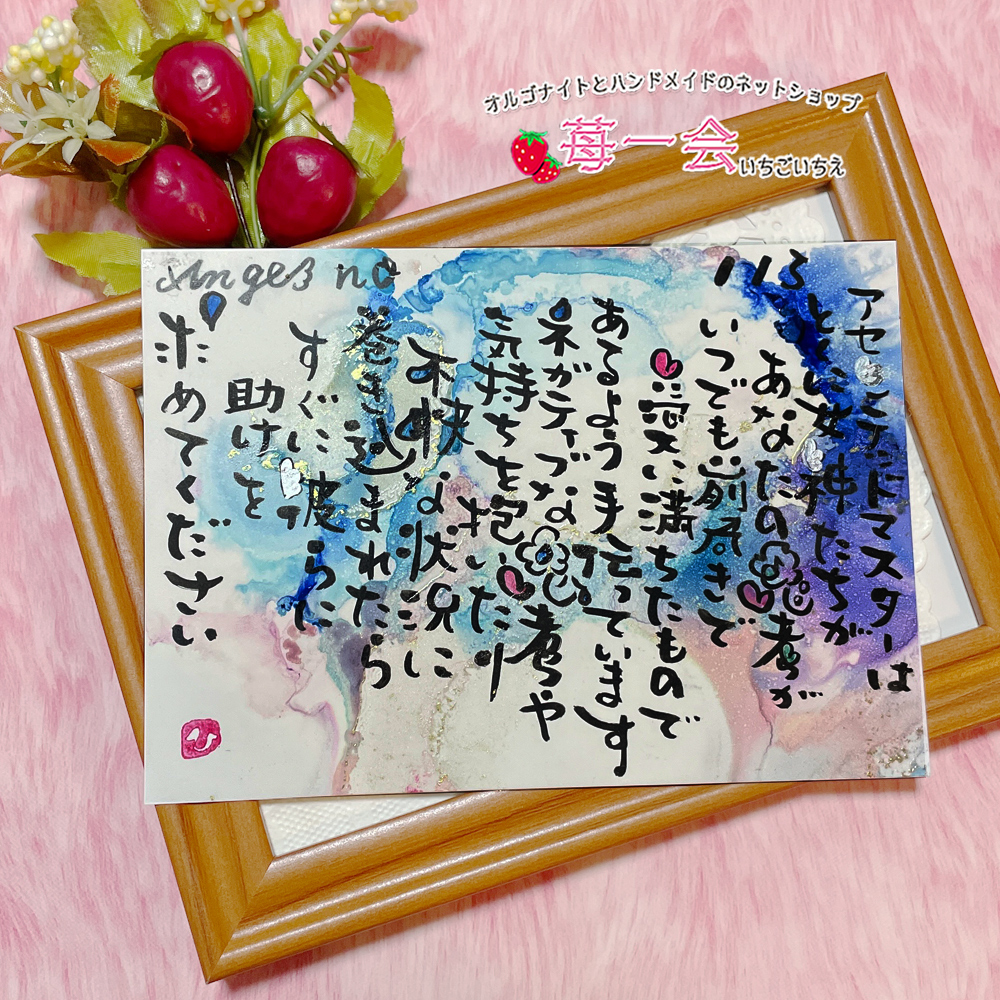 オルゴナイトとハンドメイドのネットショップ
苺一会
いちごいちえ
Anges no
113
アセンデッドマスターは
ともに女神たちが
あなたの思考が
いつでも前向きで
愛に満ちたもので
あるよう手伝っています
ネガティブな思考や
気持ちを抱いたり
不快な状況に
巻き込まれたら
すぐに彼らに
助けを
求めてください